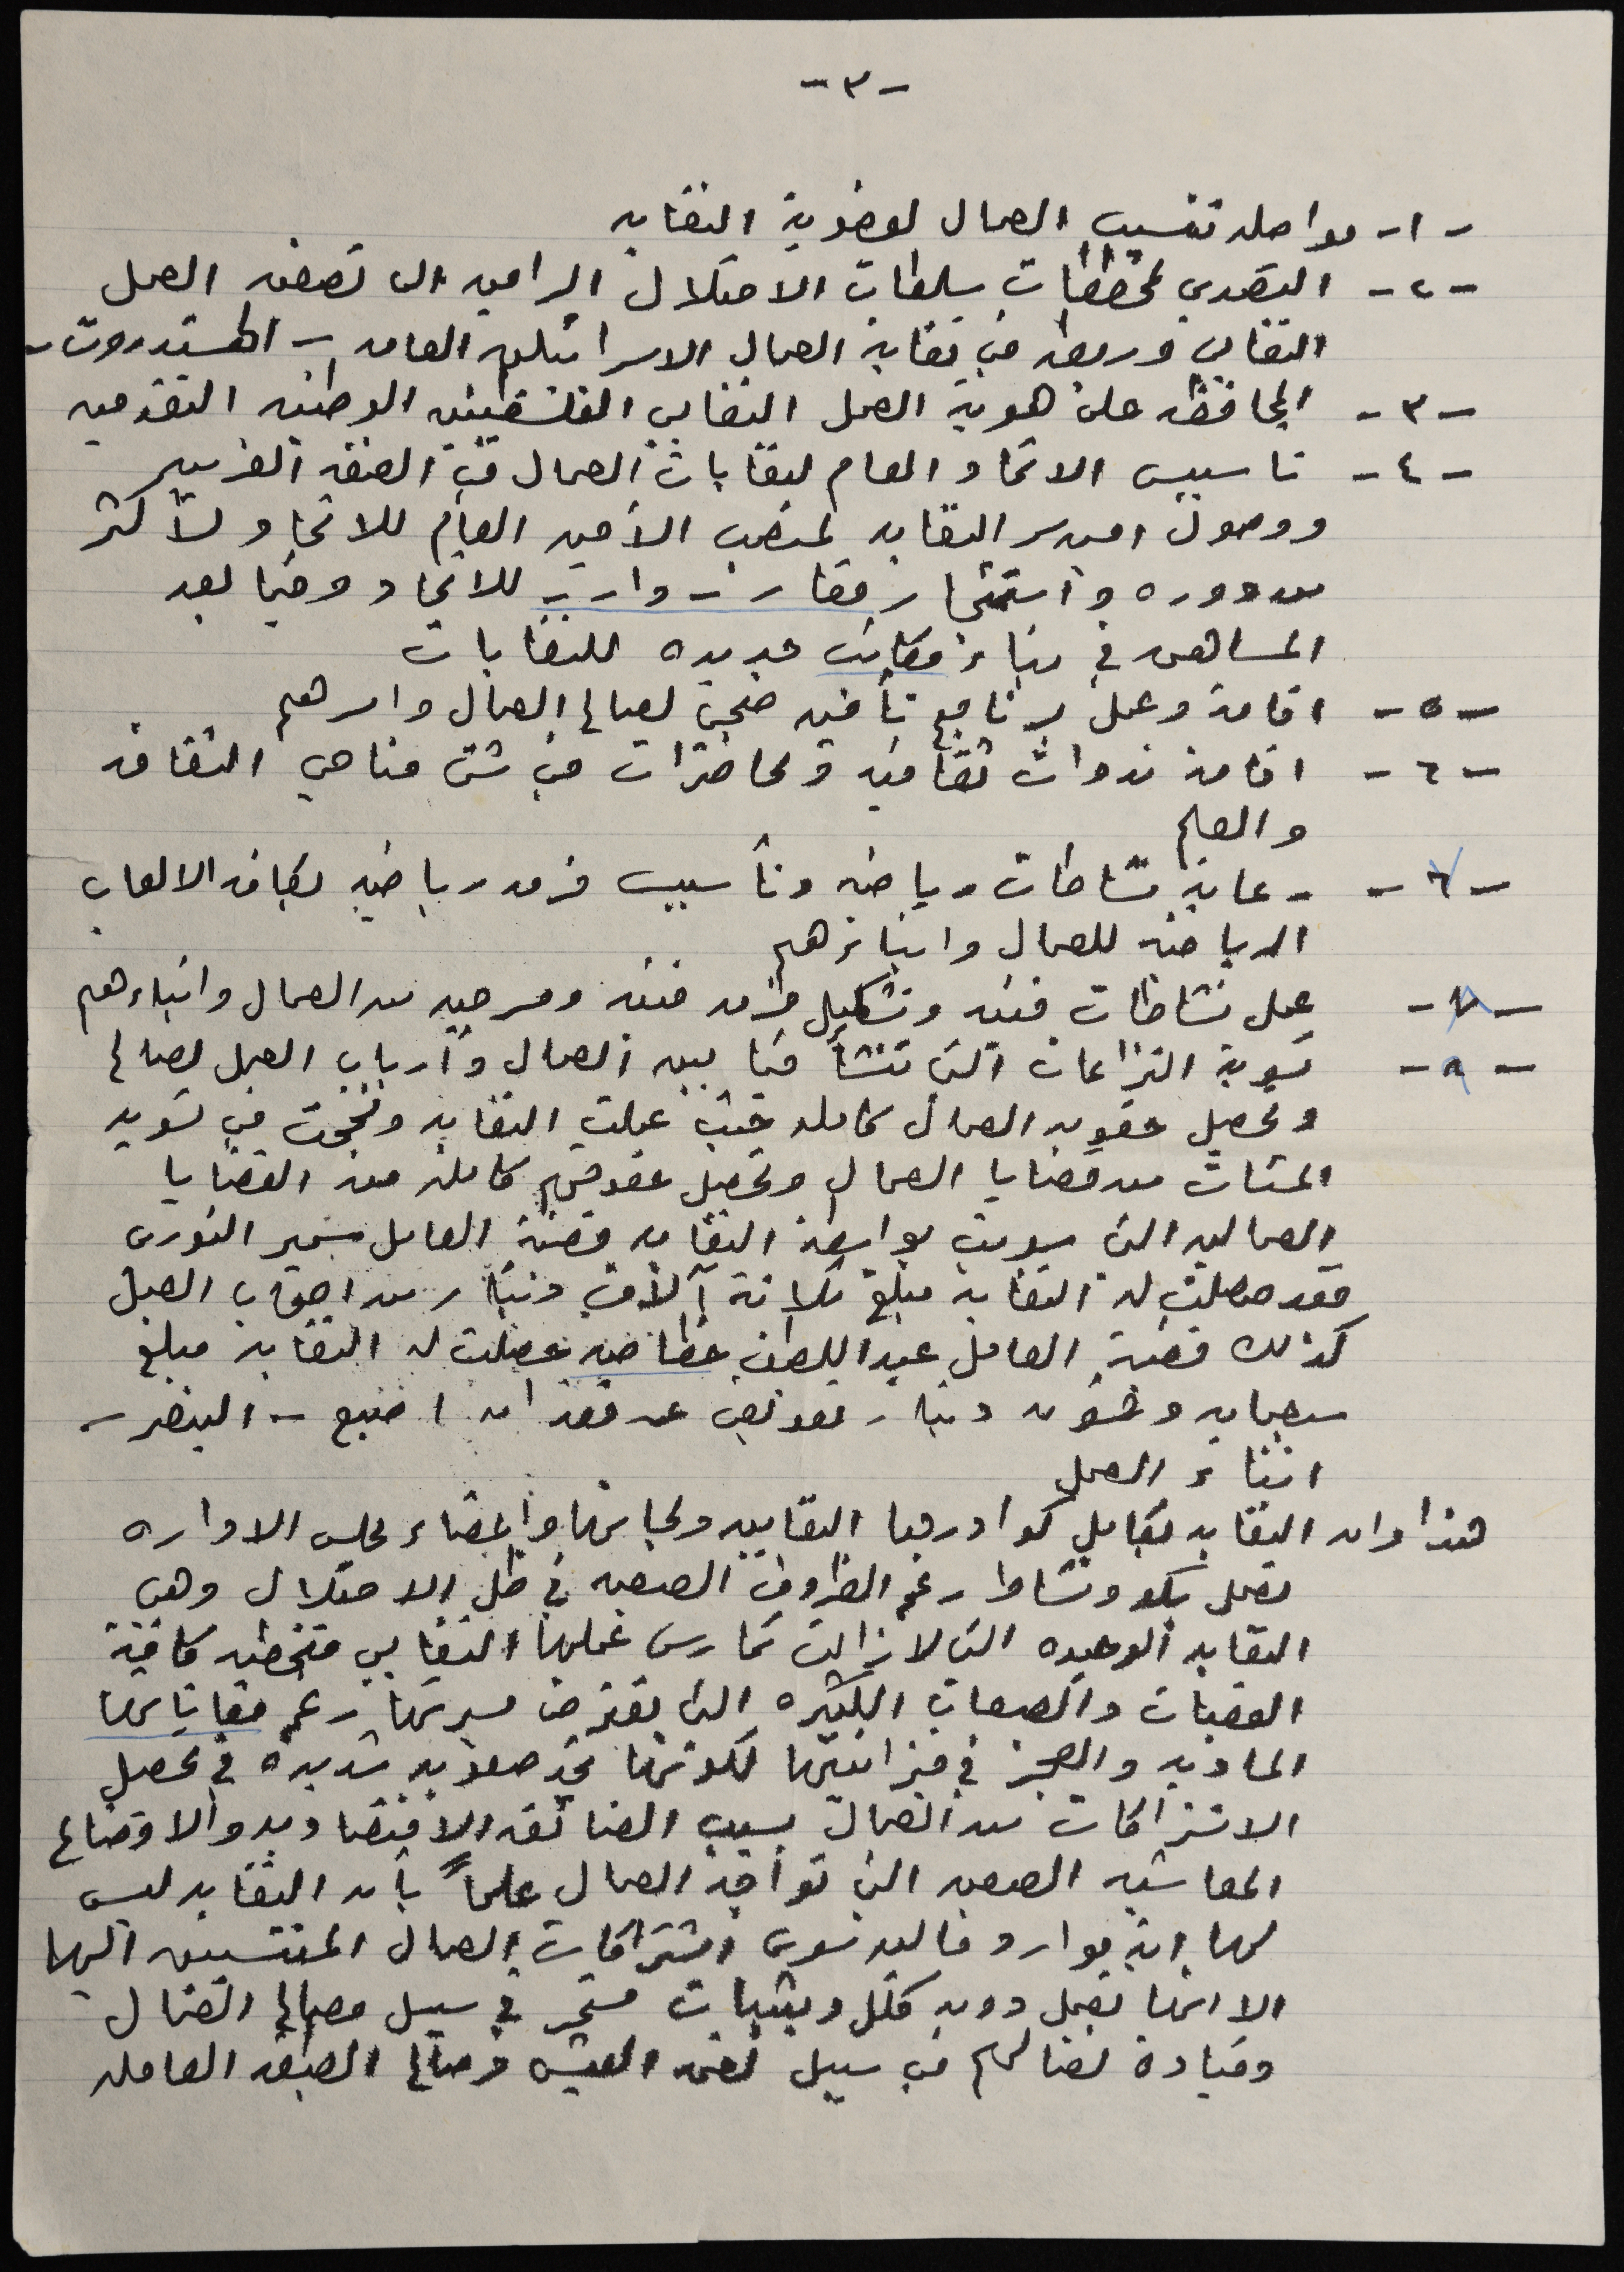 -٣-
-١- مواصلة تنسيب العمال لعضوية النقابه
-٢- التصدي لمخططات سلطات الاحتلال الراميه الى تصفية العمل
النقابي وربطه في نقابة العمال الاسرائيليه العامه - الهستدروت -
-٣- المحافظه على هوية العمل النقابي الفلسطينيه الوطنيه التقدميه
-٤- تاسيس الاتحاد العام لنقابات العمال في الضفه الغربيه
ووصول امين سر النقابه لمنصب الأمين العام للاتحاد لأكثر
من دوره واستئجار مقار - دار - للاتحاد وفيما بعد
المساهمه في بناء مكاتب جديده للنقابات
-٥- اقامة وعمل برنامج تأمين صحي لصالح العمال واسرهم
-٦- اقامة ندوات ثقافيه ومحاضرات في شتى مناحي الثقافه
والعلم
-٧- رعاية نشاطات رياضيه وتأسيس فرقه رياضيه لكافة الالعاب
الرياضيه للعمال وابنائهم
-٨- عمل نشاطات فنيه وتشكيل فرقه فنيه ومسرحيه من العمال وابناءهم
-٩- تسوية النزاعات التي تنشأ فيما بين العمال وأرباب العمل لصالح
وتحصيل حقوق العمال كامله حيث عملت النقابه ونجحت في تسوية
المئات من قضايا العمال وتحصيل حقوقهم كامله من القضايا
العماليه التي سويت بواسطة النقابه قضية العامل سمير النوري
فقد حصلت له النقابه مبلغ ثلاثة آلاف دينار من اصحاب العمل
كذلك قضية العامل عبد اللطيف حصلت له النقابه مبلغ
سبعمايه وخمسون دينار تعويض عن فقدانه اصبع - البنصر -
اثناء العمل
هذا وان النقابه بكامل كوادرها النقابيه ولجانها وأعضاء مجلس الاداره
تعمل بكد ونشاط رغم الظروف الصعبه في ظل الاحتلال وهي
النقابه الوحيده التي لازالت تمارس عملها النقابي متخطيه كافة
العقبات والصعاب الكثيره التي تعترض مسيرتها رغم معاناتها
الماديه والعجز في ميزانيتها لكونها تجد صعوبه شديدة في تحصيل
الاشتراكات من العمال بسبب الضائقه الاقتصاديه والاوضاع
المعاشيه الصعبه التي تواجه العمال علماً بأن النقابه ليس
لها اية موارد ماليه سوى اشتراكات العمال المنتسبين اليها
الا انها تعمل دون كلل وبثبات مستمر في سبيل مصالح العمال
وقيادة نضالهم في سبيل لقمة العيش وصالح الطبقه العامله